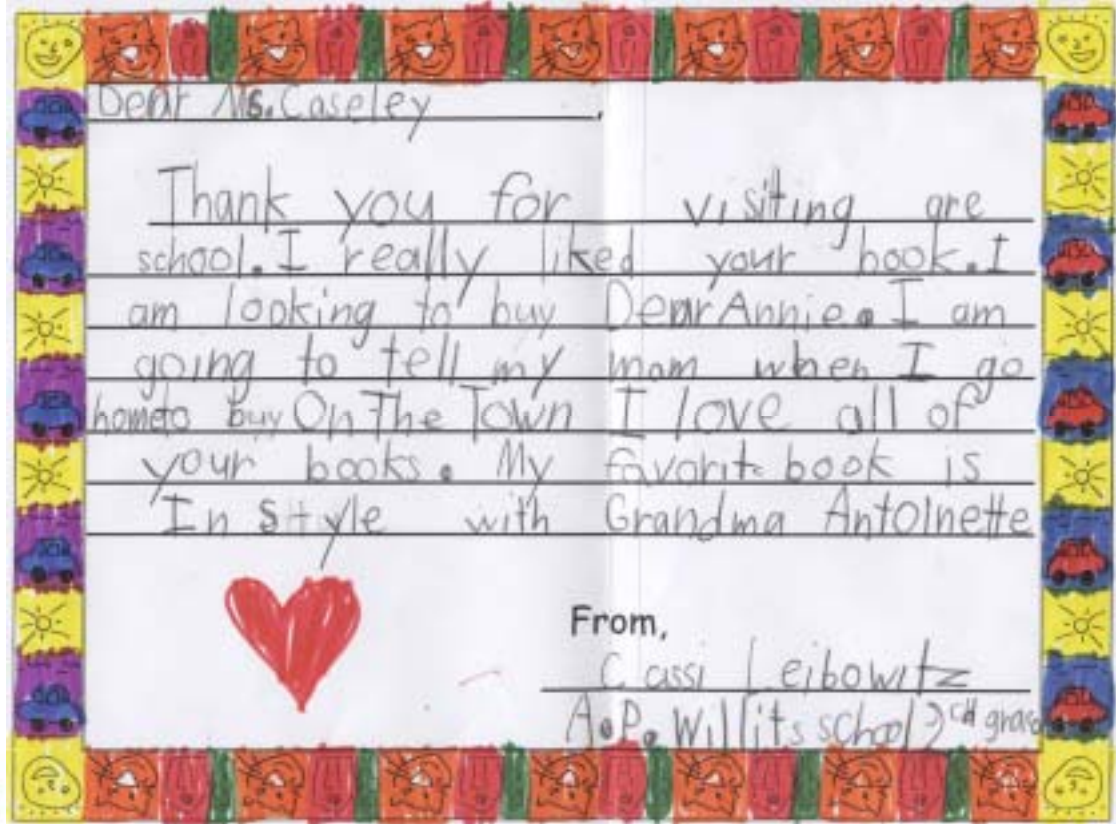 Dear Ms. Caseley,
Thank you for visiting are
school. I really liked your book. I
am looking to buy Dear Annie. I am
going to tell my mom when I go
home to buy On The Town I love all of
your books. My favorite book is
In Style with Grandma Antoinette
From,
Cassi Leibowitz
A.P. Willits school 2cd grade